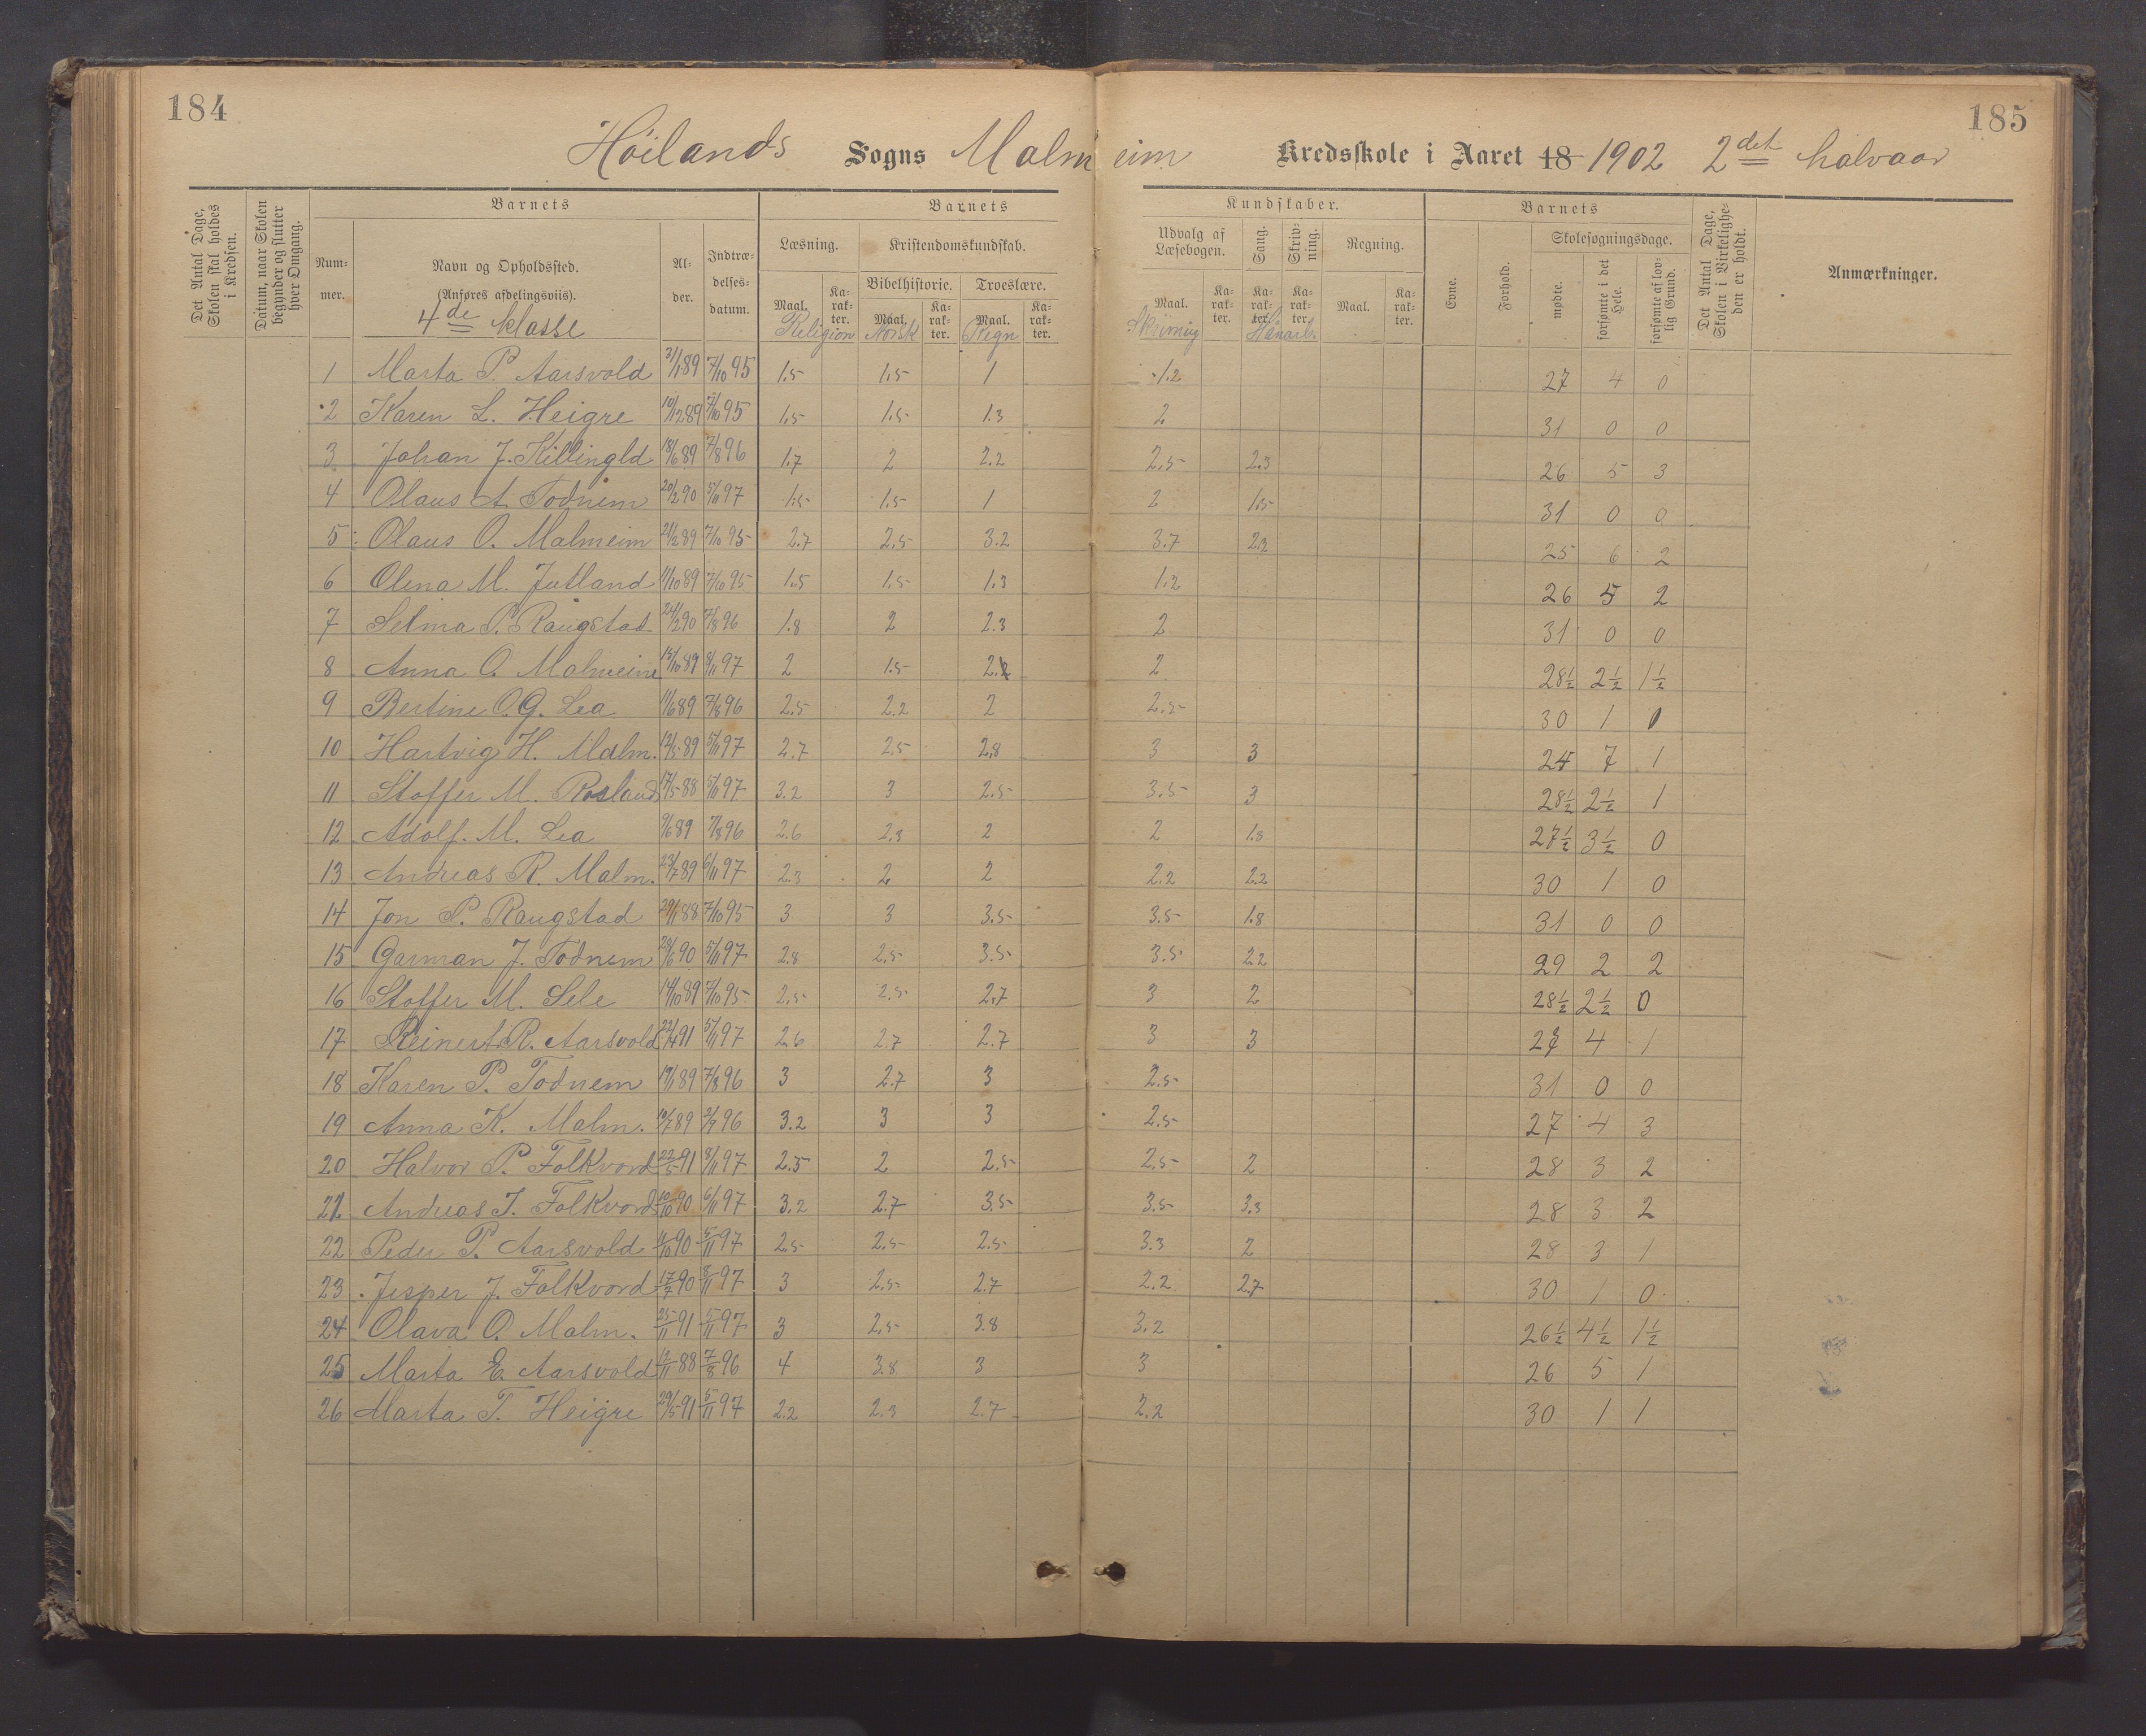 184
185
Høilands Sogns Malmeim Kredsskole i Aaret 18 1902 2det halvaar
Det Antal Dage, Skolen skal holdes i Kredsen.
Datum, naar Skolen begynder og slutter hver Omgang.
Barnets
Barnets
Kundskaber.
Barnets
Det Antal Dage, Skolen i Virkeligheden er holdt.
Anmærkninger.
Nummer.
Navn og Opholdssted.
(Anføres afdelingsviis).
4de klasse
Alder.
Indtrædelsesdatum.
Læsning.
Kristendomskundskab.
Bibelhistorie.
Troeslære.
Udvalg af Læsebogen.
Sang.
Skrivning.
Regning.
Evne.
Forhold.
Skolesøgningsdage.
mødte.
forsømte i det Hele.
forsømte af lovlig Grund.
Maal. Karakter. Maal. Karakter. Maal. Karakter. Maal. Karakter. Karakter. Karakter. Maal. Karakter.
Religion Norsk Regn Skrivning Haanarb.
1 Marta P. Aarsvold 31/1 89 7/10 95 1.5 1.5 1 1.2 27 4 0
2 Karen L. Heigre 10/12 89 7/10 95 1.5 1.5 1.3 2 31 0 0
3 Johan J. Killingld 18/6 89 7/8 96 1.7 2 2.2 2.5 2.3 26 5 3
4 Olaus A. Todnem 20/2 90 5/11 97 1.5 1.5 1 2 1.5 31 0 0
5 Olaus O. Malmeim 21/2 89 7/10 95 2.7 2.5 3.2 3.7 2.2 25 6 2
6 Olena M. Jutland 11/10 89 7/10 95 1.5 1.5 1.3 1.2 26 5 2
7 Selma P. Raugstad 24/2 90 7/8 96 1.8 2 2.3 2 31 0 0
8 Anna O. Malmeim 15/10 89 8/11 97 2 1.5 2.2 2 28½ 2½ 1½
9 Bertine O.G. Lea 11/6 89 7/8 96 2.5 2.2 2 2.5 30 1 0
10 Hartvig H. Malm. 12/5 89 5/11 97 2.7 2.5 2.8 3 3 24 7 1
11 Stoffer M. Rosland 17/5 88 5/11 97 3.2 3 2.5 3.5 3 28½ 2½ 1
12 Adolf. M. Lea 9/6 89 7/8 96 2.6 2.3 2 2 1.8 27½ 3½ 0
13 Andreas R. Malm. 23/7 89 6/11 97 2.3 2 2 2.2 2.2 30 1 0
14 Jon P. Raugstad 29/1 88 7/10 95 3 3 3.5 3.5 1.8 31 0 0
15 Garman J. Todnem 28/6 90 5/11 97 2.8 2.5 3.5 3.5 2.2 29 2 2
16 Stoffer M. Sele 14/10 89 7/10 95 2.5 2.5 2.7 3 2 28½ 2½ 0
17 Reinert R. Aarsvold 22/4 91 5/11 97 2.6 2.7 2.7 3 3 27 4 1
18 Karen P. Todnem 19/1 89 7/8 96 3 2.7 3 2.5 31 0 0
19 Anna K. Malm. 10/7 89 2/9 96 3.2 3 3 2.5 27 4 3
20 Halvor P. Folkvord 22/5 91 8/11 97 2.5 2 2.5 2.5 2 28 3 2
21 Andreas T. Folkvord 10/10 90 6/11 97 3.2 2.7 3.5 3.5 3.3 28 3 2
22 Peder P. Aarsvold 11/10 90 5/11 97 2.5 2.5 2.5 3.3 2 28 3 1
23 Jesper J. Folkvord 17/7 90 8/11 97 3 2.5 2.7 2.2 2.7 30 1 0
24 Olava O. Malm. 25/11 91 5/11 97 3 2.5 3.8 3.2 26½ 4½ 1½
25 Marta E. Aarsvold 12/11 88 7/8 96 4 3.8 3 3 26 5 1
26 Marta T. Heigre 29/5 91 5/11 97 2.2 2.3 2.7 2.2 30 1 1